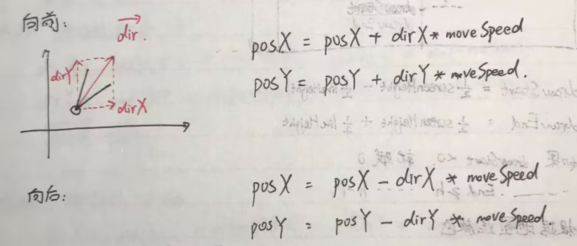 向前:
dir.
dirY
dirX
posX = posX + dirX * moveSpeed
posY = posY + dirY * moveSpeed.
向后:
posX = posX - dirX * moveSpeed
posY = posY - dirY * moveSpeed